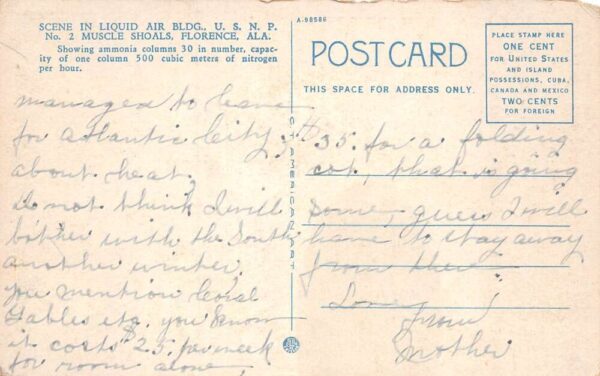 SCENE IN LIQUID AIR BLDG., U. S. N. P.
No. 2 MUSCLE SHOALS, FLORENCE, ALA.
Showing ammonia columns 30 in number, capac-
ity of one column 500 cubic meters of nitrogen
per hour.
A-98586
POST CARD
THIS SPACE FOR ADDRESS ONLY.
PLACE STAMP HERE
ONE CENT
FOR UNITED STATES
AND ISLAND
POSSESSIONS, CUBA,
CANADA AND MEXICO
TWO CENTS
FOR FOREIGN
managed to leave
for Atlantic City,
about heat?
do not think I will
bither with the South
another winter.
you mention Coral
Gables etc. you know
it costs $25. per week
for room alone,
C.T. AMERICAN ART
$35. for a folding
cot, that is going
some, guess I will
have to stay away
from there.
Love
from
Mother